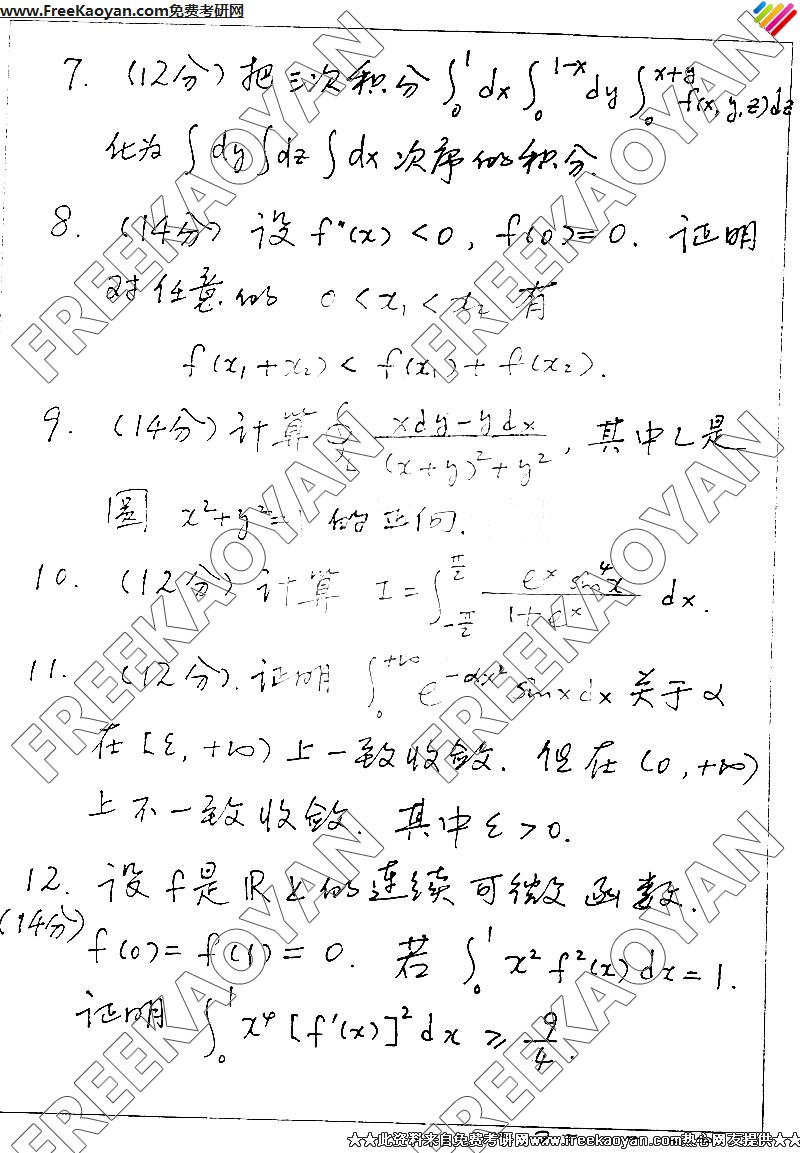 www.FreeKaoyan.com免费考研网
7. (12分) 把三次积分 ∫₀¹ dx ∫₀^{1-x} dy ∫₀^{x+y} f(x, y, z) dz
化为 ∫ dy ∫ dz ∫ dx 次序的积分.
8. (14分) 设 f''(x) < 0, f(0) = 0. 证明
对任意的 0 < x₁ < x₂ 有
f(x₁+x₂) < f(x₁) + f(x₂).
9. (14分) 计算 ∮_L (xdy-ydx)/((x+y)²+y²), 其中L是
圆 x²+y²=1 的正向.
10. (12分) 计算 I = ∫_{-π/2}^{π/2} (eˣ sin⁴x)/(1+eˣ) dx.
11. (12分). 证明 ∫₀^{+∞} e^{-αx²} sinx dx 关于α
在 [ε, +∞) 上一致收敛. 但在 (0, +∞)
上不一致收敛. 其中 ε > 0.
12. 设 f是 ℝ上的连续可微函数.
(14分) f(0) = f(1) = 0. 若 ∫₀¹ x² f²(x) dx = 1.
证明 ∫₀¹ x⁴ [f'(x)]² dx ≥ 9/4.
★★此资料来自免费考研网www.freekaoyan.com热心网友提供★★
FREEKAOYAN
FREEKAOYAN
FREEKAOYAN
FREEKAOYAN
FREEKAOYAN
FREEKAOYAN